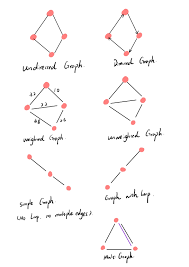 Undirected Graph.
Directed Graph.
32
10
22
48
26
weighted Graph
Unweighted Graph.
simple Graph
(No Loop, no multiple edges)
Graph with loop
Multi Graph